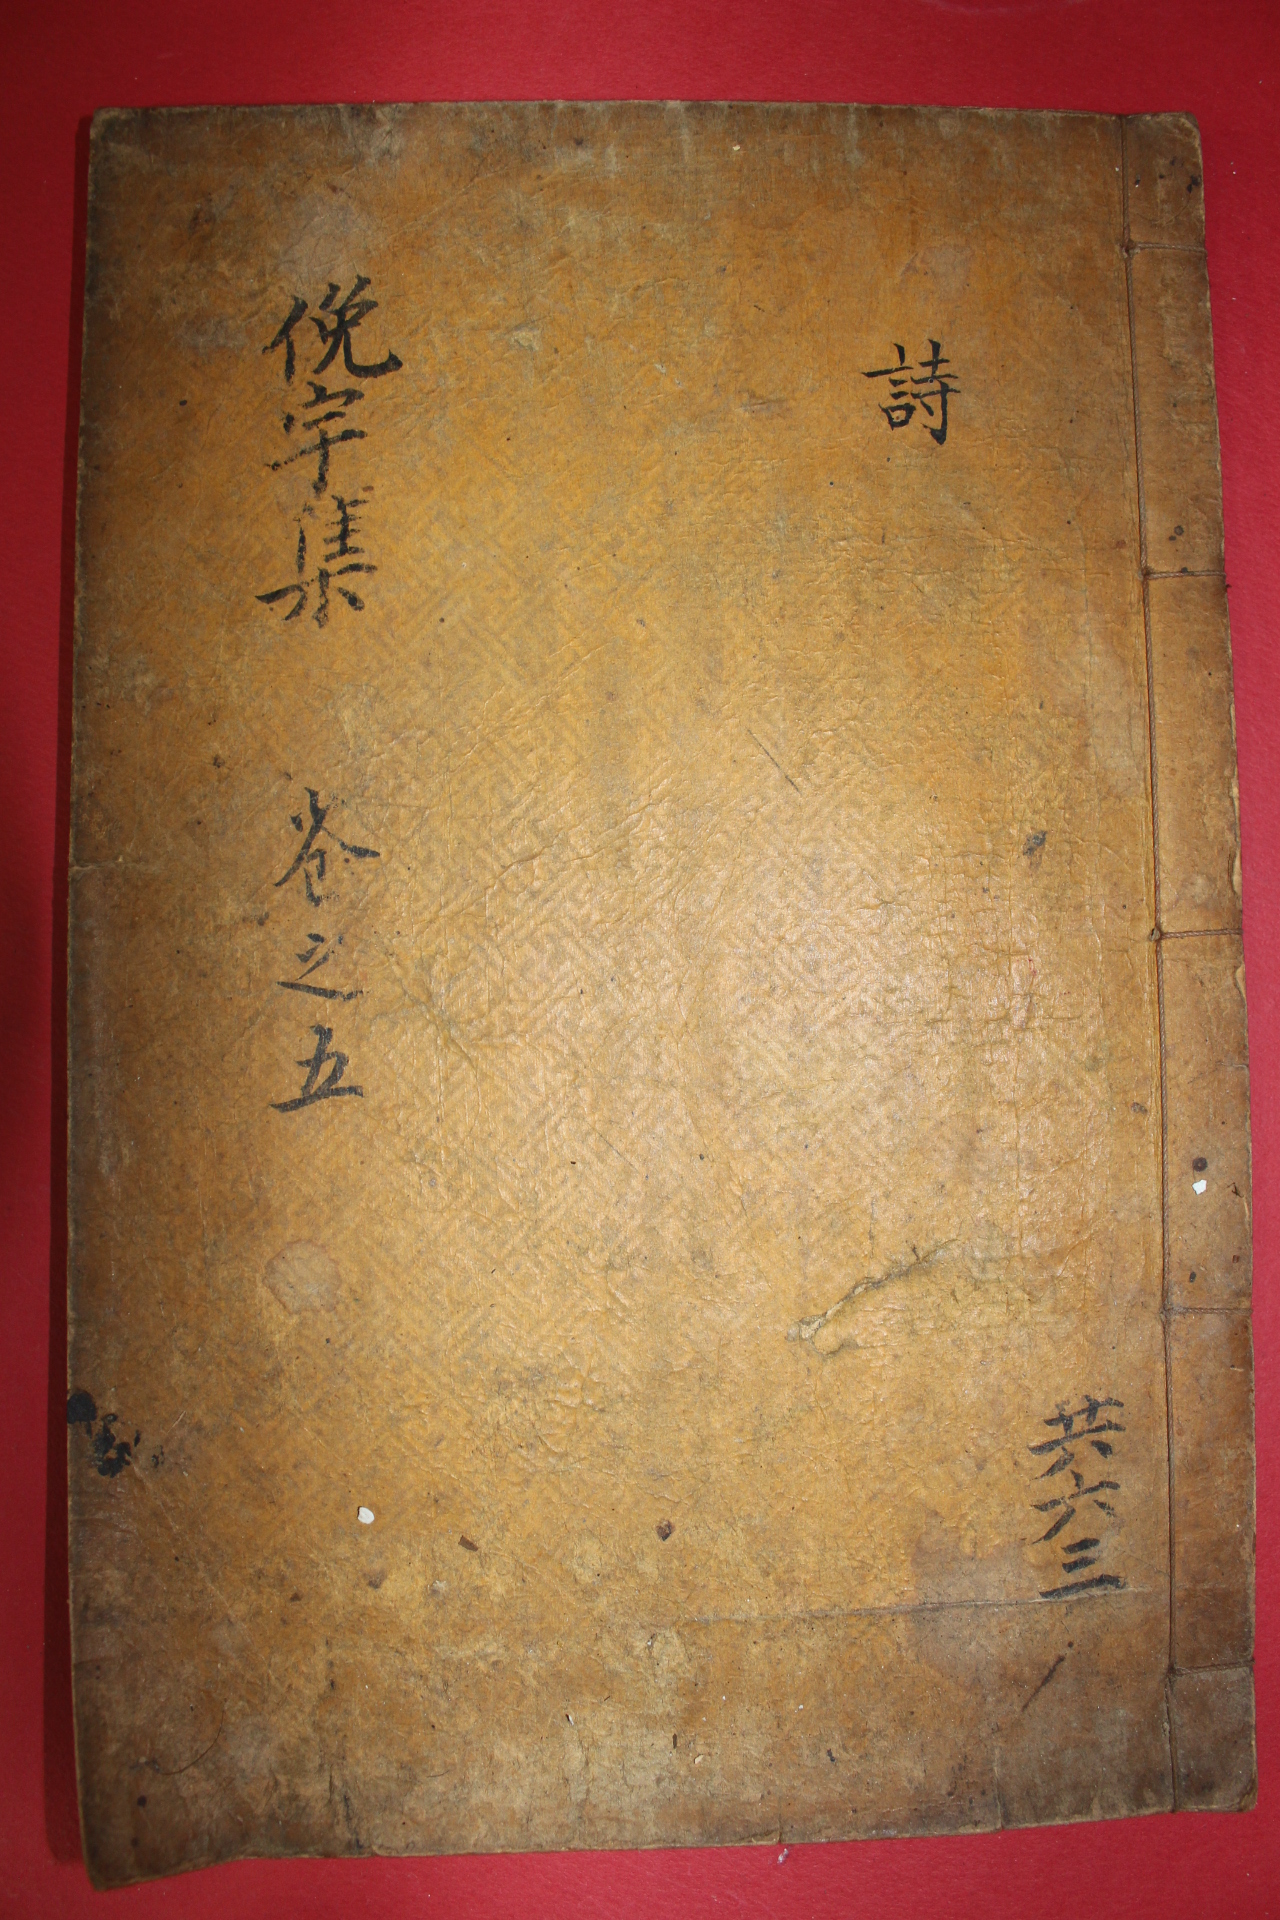 詩
共六三
俛宇集 卷之五